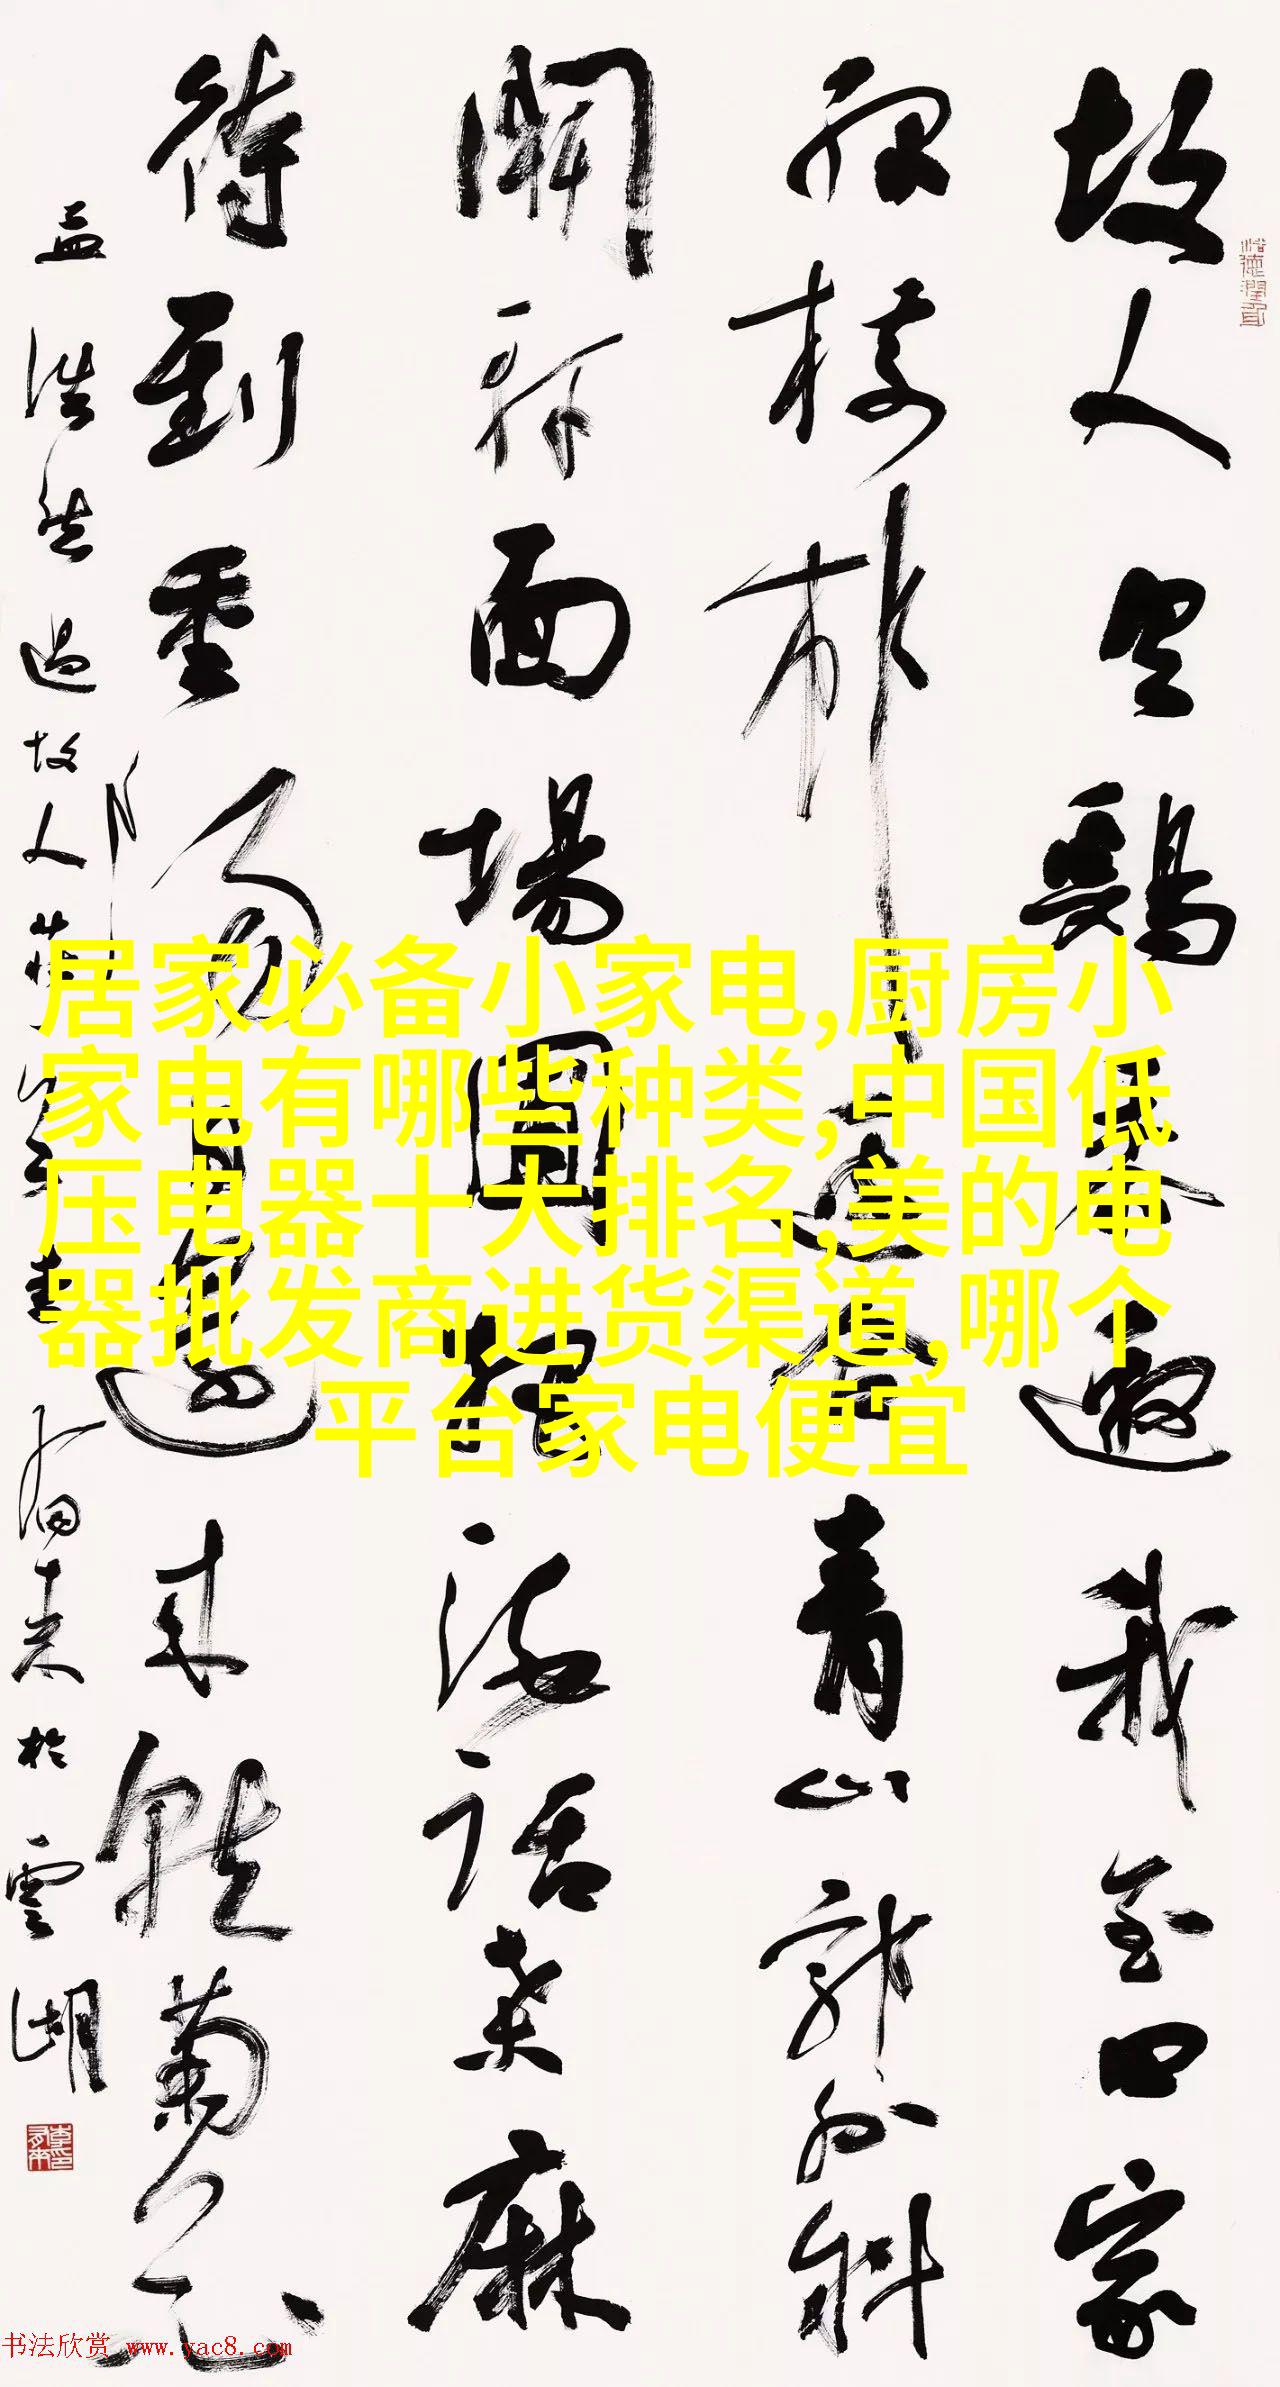 故人具鷄黍邀我至田家
綠樹村邊合青山郭外斜
開軒面場圃把酒話桑麻
待到重陽日還來就菊花
孟浩然過故人莊
有来於雲湖
居家必备小家电,厨房小
家电有哪些种类,中国低
压电器十大排名,美的电
器批发商进货渠道,哪个
平台家电便宜
书法欣赏 www.yac8.com